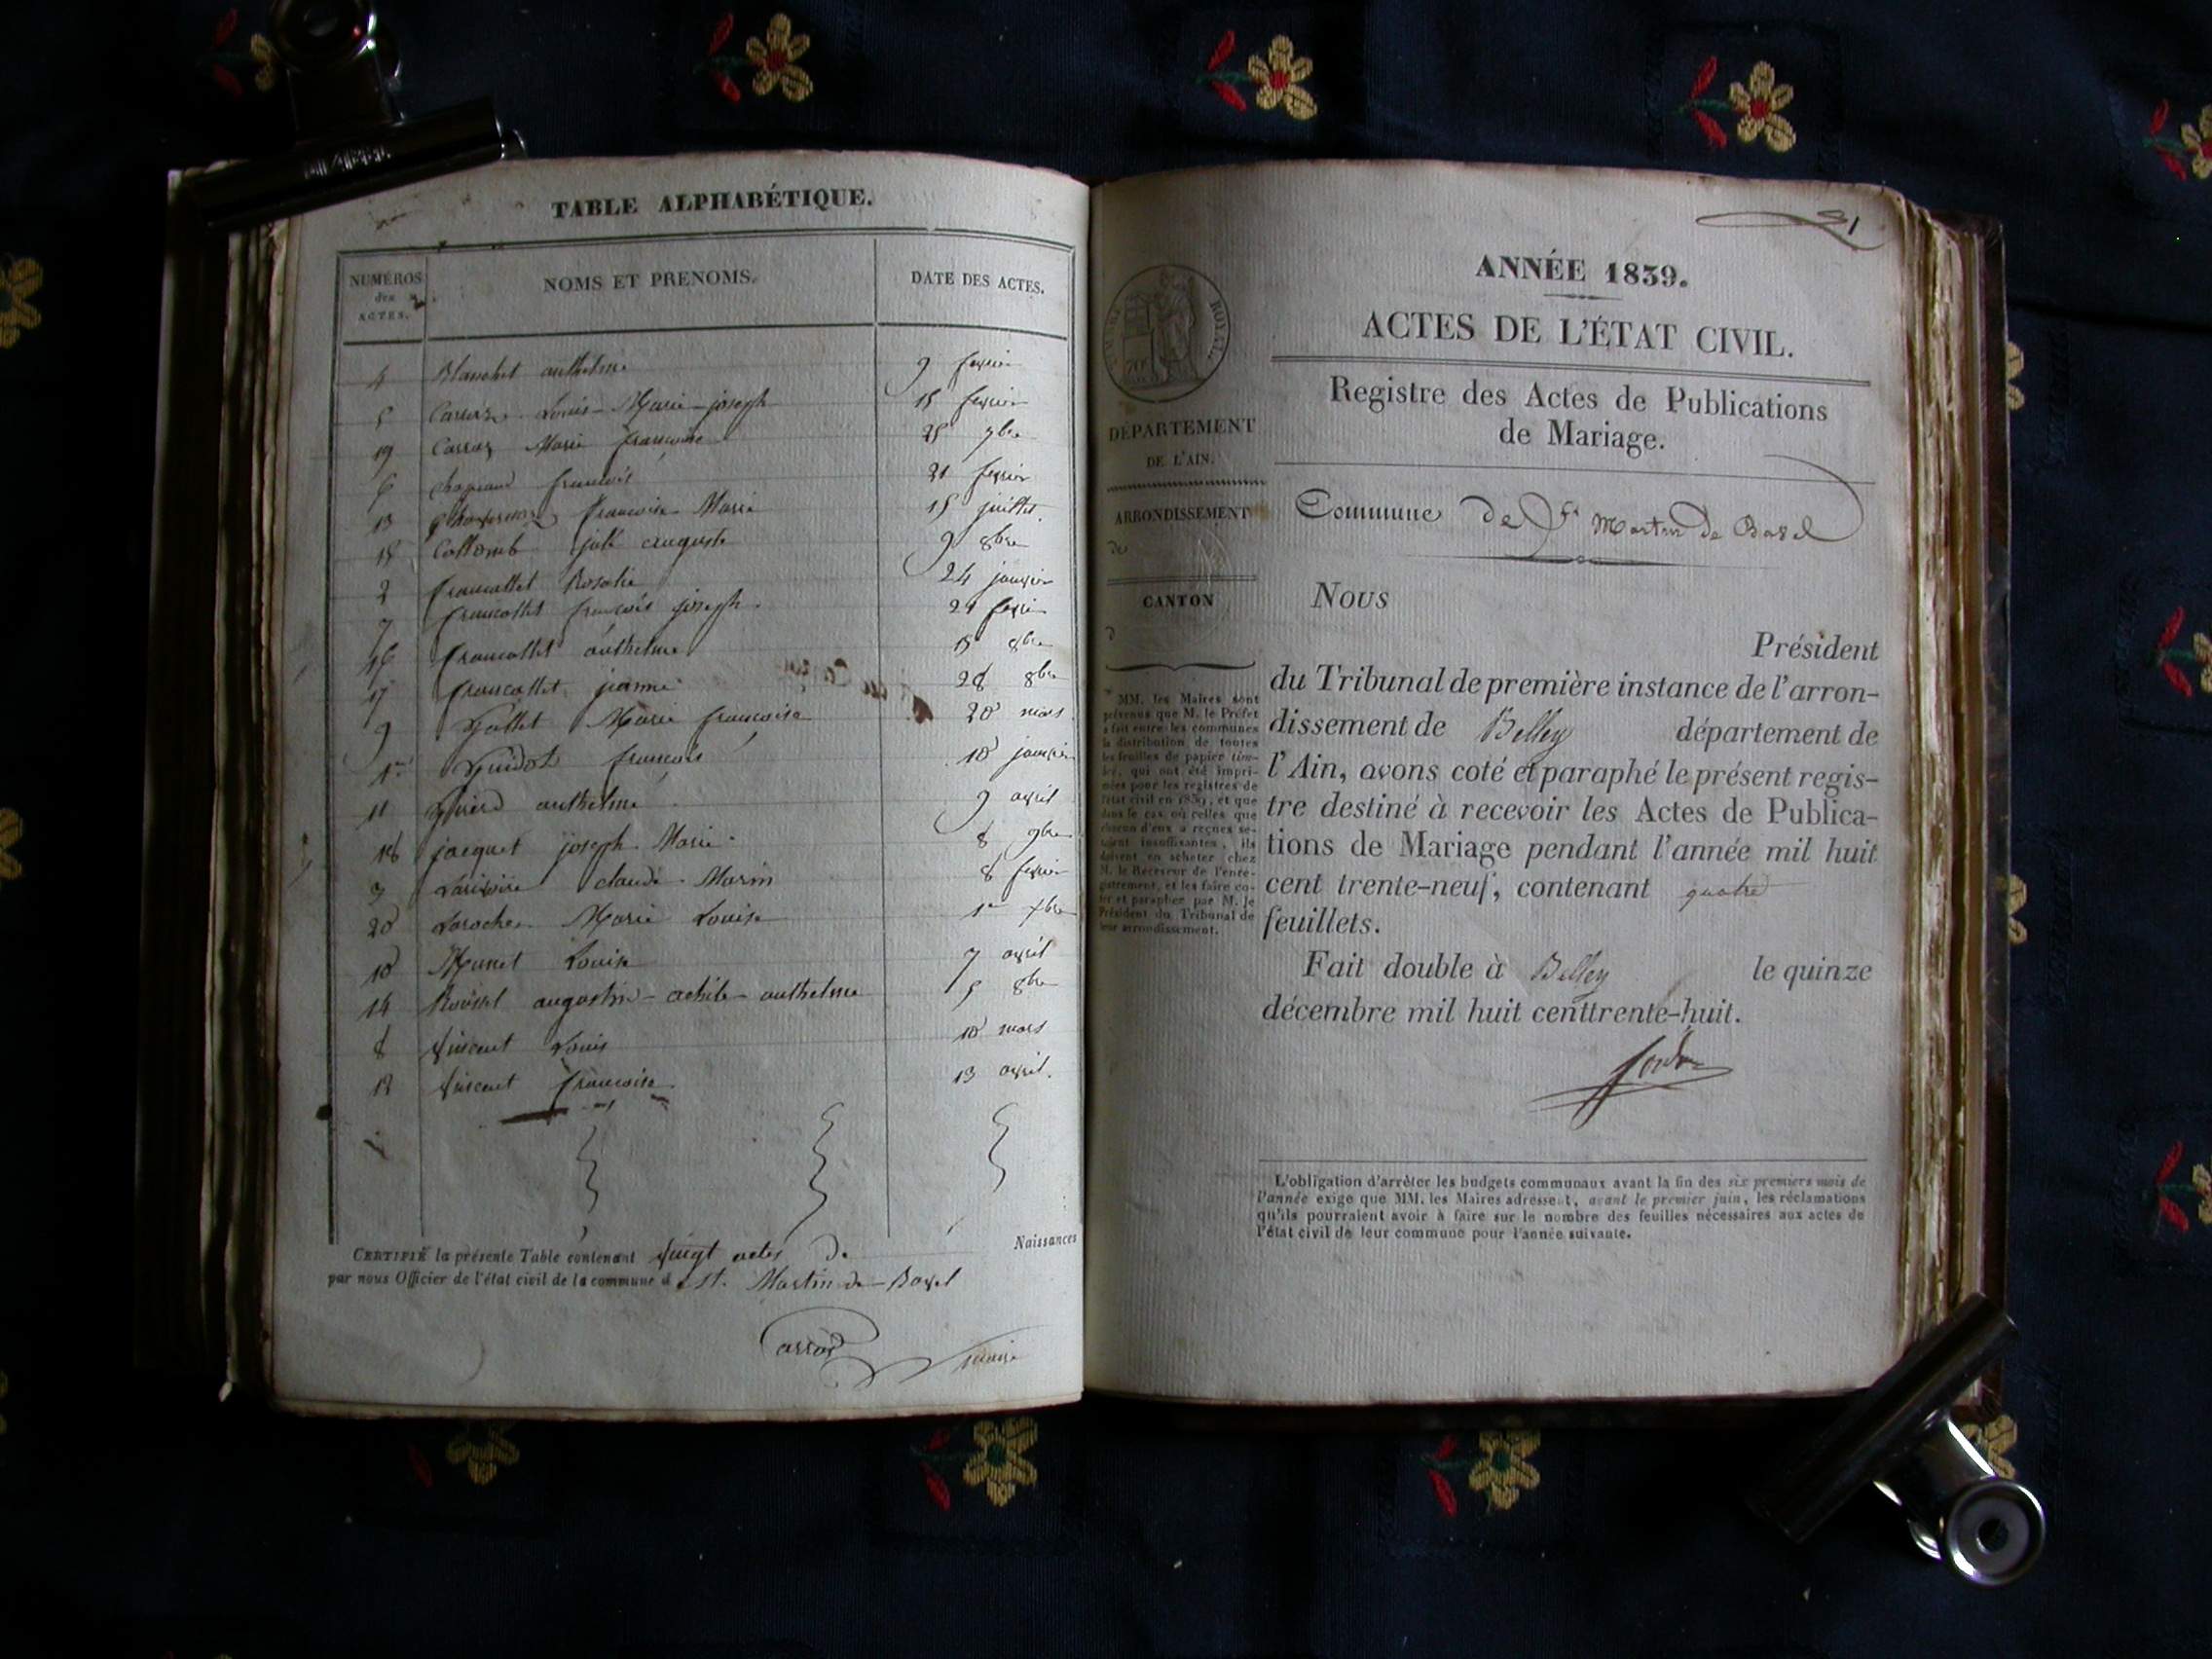 TABLE ALPHABÉTIQUE.
NUMÉROS des ACTES. NOMS ET PRENOMS. DATE DES ACTES.
4 Blanchet anthelme 9 fevrier
5 Louis-Marie-joseph 15 fevrier
19 Carraz Marie francoise 25 9bre
6 francois 21 fevrier
13 francoise Marie 15 juillet
15 Collomb jule auguste 9 8bre
2 francallet Rosalie 24 janvier
7 francallet francois joseph 21 fevrier
16 francallet anthelme 15 8bre
17 francallet jeanne 28 8bre
9 Gallet Marie francoise 20 mars
1er Guidot francois 10 janvier
11 anthelme 9 avril
18 jacquet joseph Marie 8 9bre
3 Larivoire claude Marin 8 fevrier
20 Laroche Marie Louise 1er xbre
10 Munet Louise 7 avril
14 Roussel augustin-achile-anthelme 5 8bre
8 Vincent Louis 10 mars
12 Vincent francoise 13 avril.
CERTIFIÉ la présente Table contenant vingt actes de Naissances
par nous Officier de l'état civil de la commune d St. Martin de Bavel
Carraz maire
81
ANNÉE 1839.
ACTES DE L'ÉTAT CIVIL.
Registre des Actes de Publications
de Mariage.
TIMBRE ROYAL
DÉPARTEMENT
DE L'AIN.
ARRONDISSEMENT
de
CANTON
d
MM. les Maires sont
prévenus que M. le Préfet
a fait entre les communes
la distribution de toutes
les feuilles de papier tim-
bré, qui ont été impri-
mées pour les registres de
l'état civil en 1839, et que
dans le cas où celles que
chacun d'eux a reçues se-
raient insuffisantes, ils
doivent en acheter chez
M. le Receveur de l'enre-
gistrement, et les faire co-
ter et parapher par M. le
Président du Tribunal de
leur arrondissement.
Commune de St Martin de Bavel
Nous
Président
du Tribunal de première instance de l'arron-
dissement de Belley département de
l'Ain, avons coté et paraphé le présent regis-
tre destiné à recevoir les Actes de Publica-
tions de Mariage pendant l'année mil huit
cent trente-neuf, contenant quatre
feuillets.
Fait double à Belley le quinze
décembre mil huit centtrente-huit.
L'obligation d'arrêter les budgets communaux avant la fin des six premiers mois de
l'année exige que MM. les Maires adressent, avant le premier juin, les réclamations
qu'ils pourraient avoir à faire sur le nombre des feuilles nécessaires aux actes de
l'état civil de leur commune pour l'année suivante.